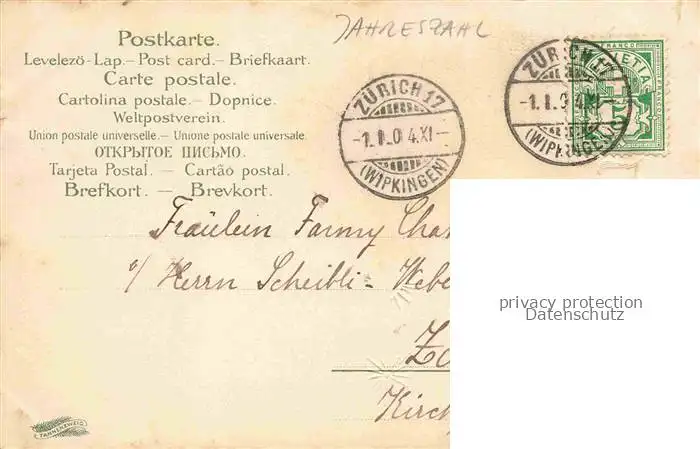 JAHRESZAHL
Postkarte.
Levelezö-Lap.– Post card.– Briefkaart.
Carte postale.
Cartolina postale.– Dopnice.
Weltpostverein.
Union postale universelle.– Unione postale universale.
ОТКРЫТОЕ ПИСЬМО.
Tarjeta Postal.– Cartão postal.
Brefkort. — Brevkort.
ZÜRICH 17
-1.I.04.XI-
(WIPKINGEN)
ZÜRICH 17
-1.I.04.XI-
(WIPKINGEN)
FRANCO
Fräulein Fanny
c/ Herrn Scheibli-Webe
Zo
Kirch
privacy protection
Datenschutz
TANNENZWEIG